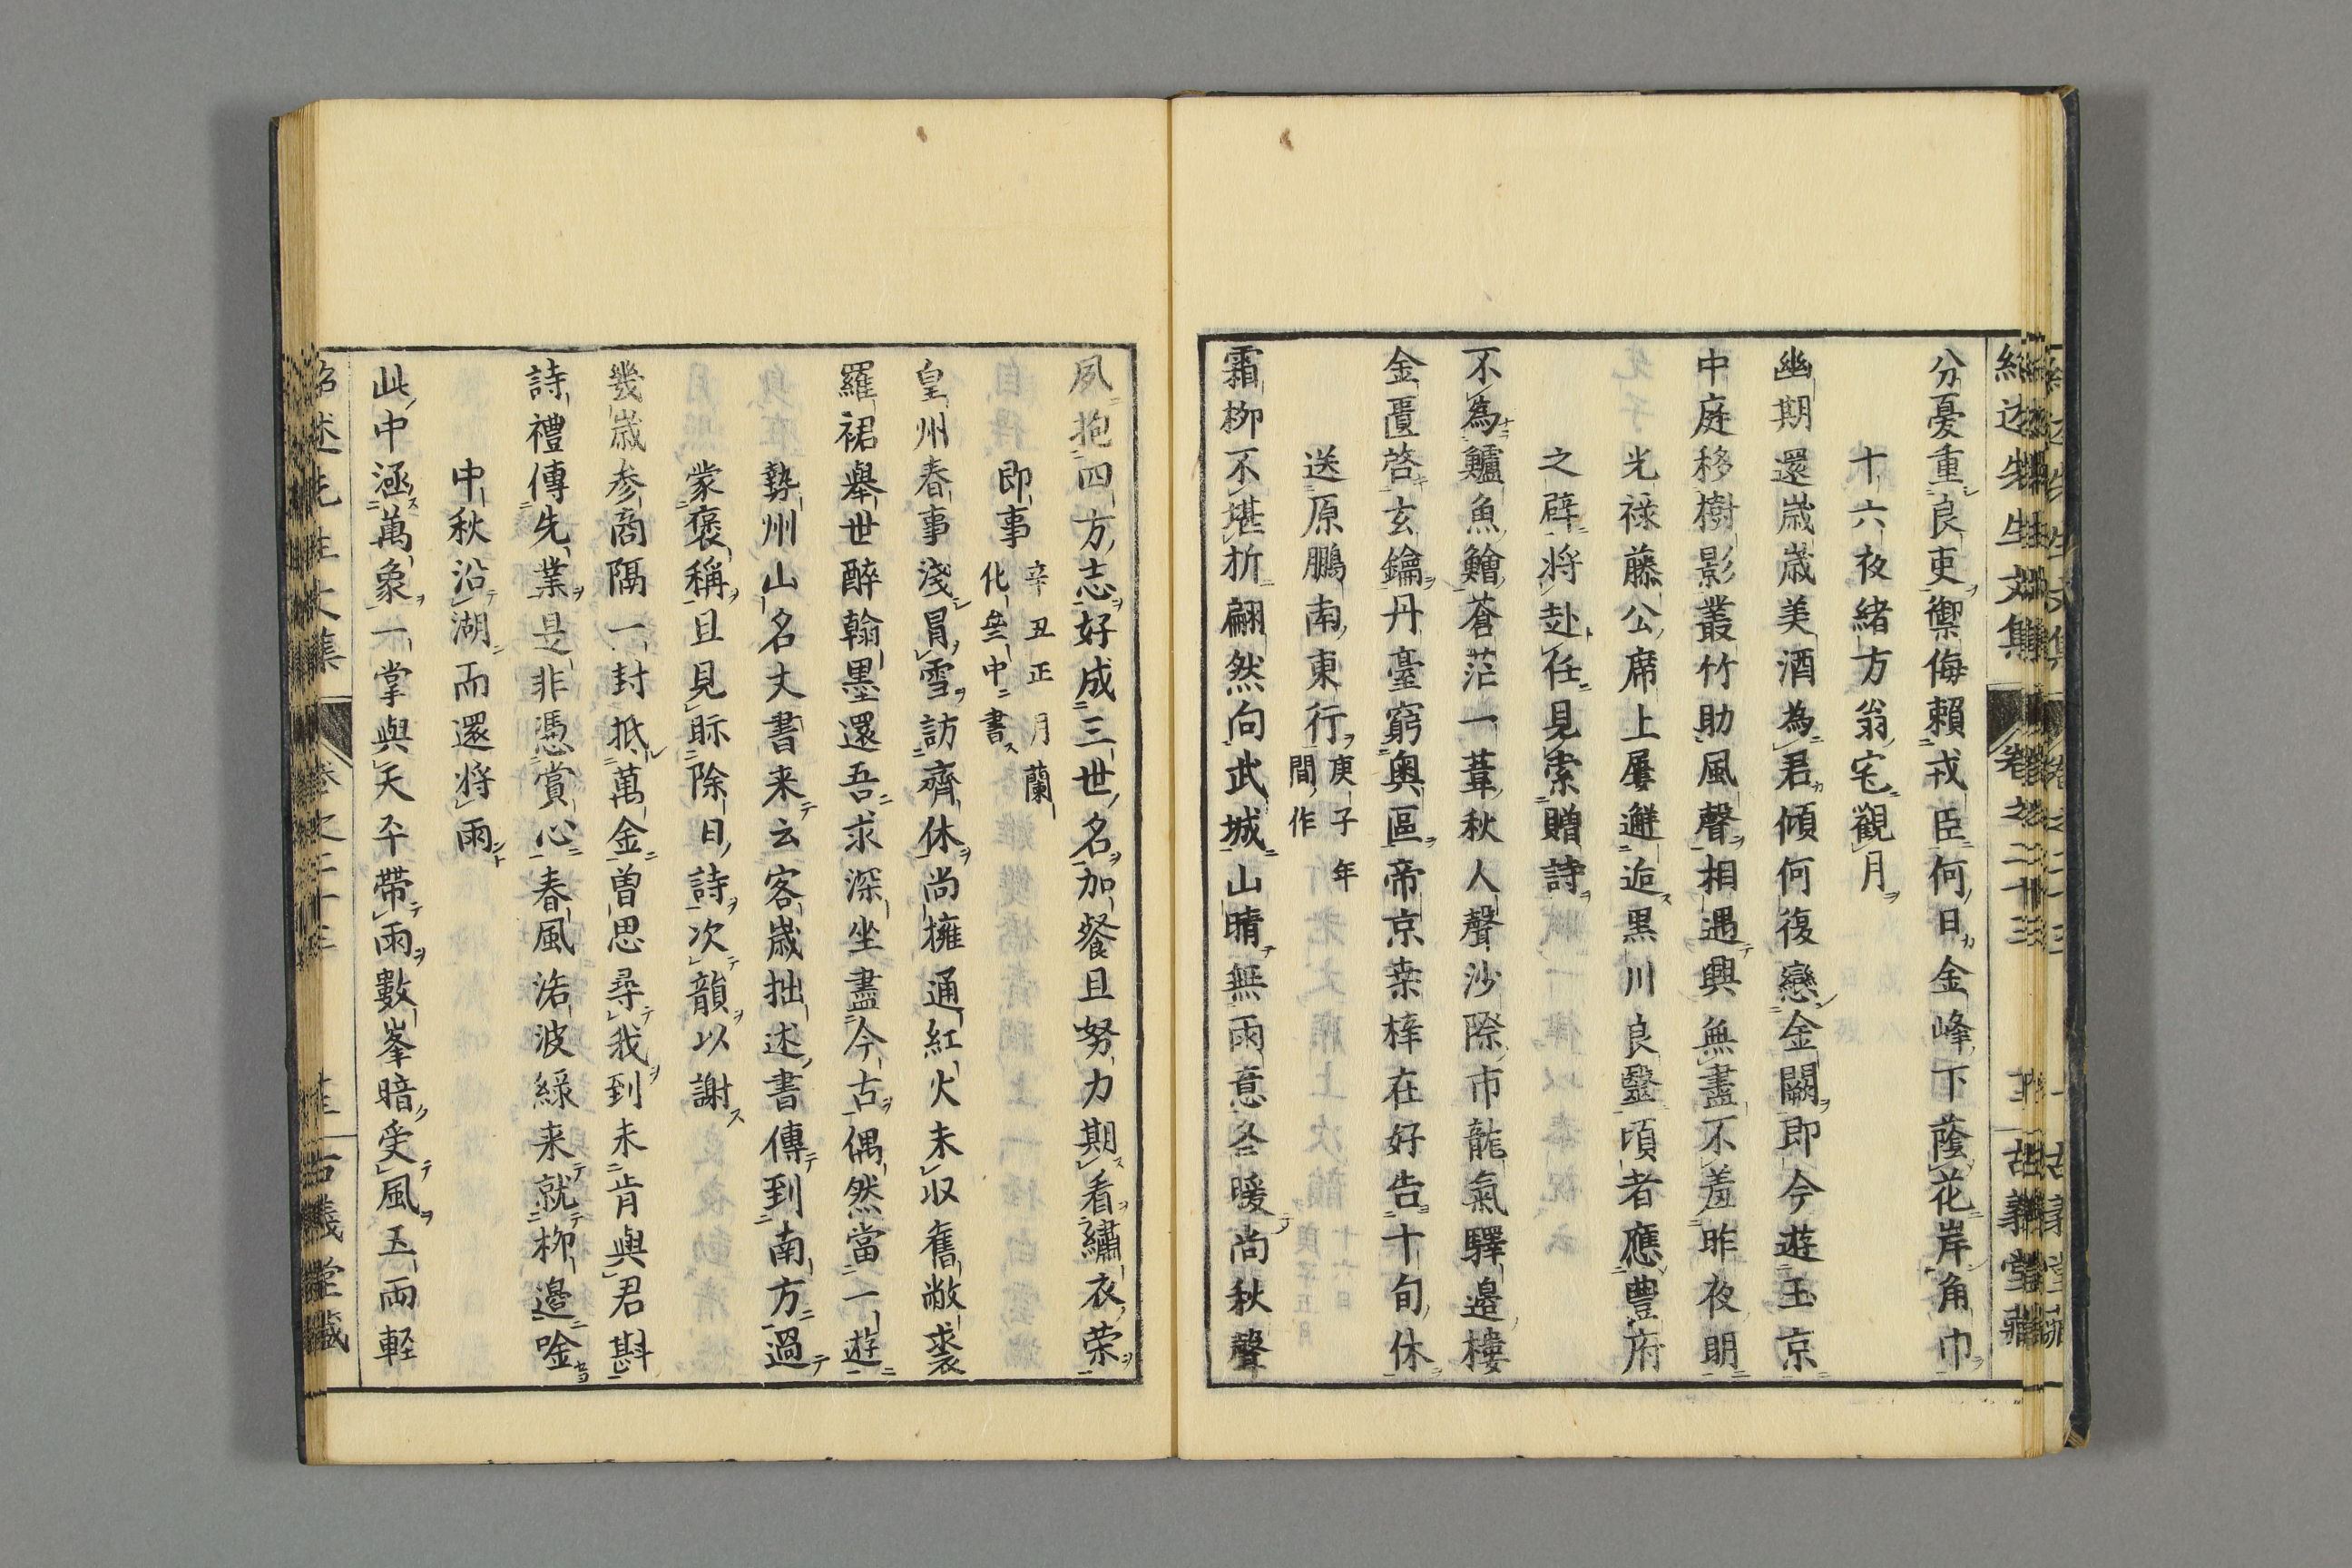 分憂重良吏禦侮賴戎臣何日金峰下蔭花岸角巾
十六夜緒方翁宅觀月
幽期還歳歳美酒為君傾何復戀金闕即今遊玉京
中庭移樹影叢竹助風聲相遇興無盡不羞昨夜明
光祿藤公席上屢邂逅黒川良毉頃者應豊府
之辟将赴任見索贈詩
不為鱸魚鱠蒼茫一葦秋人聲沙際市龍氣驛邉樓
金匱啓玄鑰丹臺窮奥區帝京桒梓在好告十旬休
送原鵬南東行庚子年
間作
霜栁不堪折翩然向武城山晴無雨意冬暖尚秋聲
夙抱四方志好成三世名加餐且努力期看繡衣荣
即事辛丑正月蘭
化亝中書
皇州春事淺冐雪訪齊休尚擁通紅火未収舊敝裘
羅裙舉世醉翰墨還吾求深坐盡今古偶然當一遊
勢州山名丈書来云客歳拙述書傳到南方過
蒙褒稱且見眎除日詩次韻以謝
幾歳参商隔一封抵萬金曽思尋我到未肯與君斟
詩禮傳先業是非憑賞心春風洛波緑来就栁邉唫
中秋沿湖而還将雨
此中涵萬象一掌與天平帶雨數峯暗受風五両軽
紹述先生文集
卷之二十三
古義堂藏